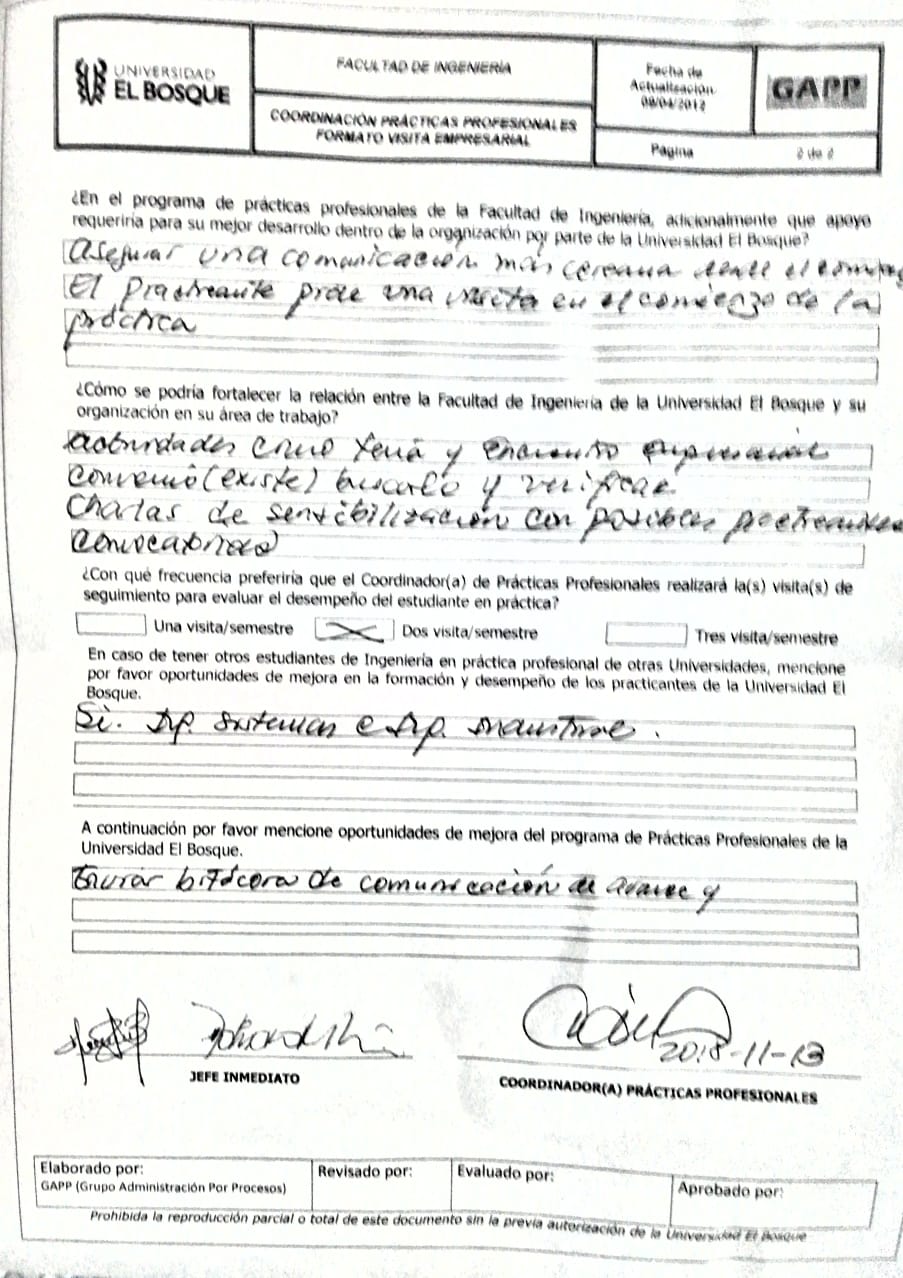 UNIVERSIDAD
EL BOSQUE
FACULTAD DE INGENIERÍA
COORDINACIÓN PRÁCTICAS PROFESIONALES
FORMATO VISITA EMPRESARIAL
Fecha de
Actualización
GAPP
Página
2 de 2
¿En el programa de prácticas profesionales de la Facultad de Ingeniería, adicionalmente que apoyo
requeriría para su mejor desarrollo dentro de la organización por parte de la Universidad El Bosque?
Asegurar una comunicación más cercana
El una visita en el comienzo de la
práctica
¿Cómo se podría fortalecer la relación entre la Facultad de Ingeniería de la Universidad El Bosque y su
organización en su área de trabajo?
actividades como feria y encuentro empresarial
Convenio (existe) buscarlo y verificar
Charlas de sensibilización con posibles
¿Con qué frecuencia preferiría que el Coordinador(a) de Prácticas Profesionales realizará la(s) visita(s) de
seguimiento para evaluar el desempeño del estudiante en práctica?
Una visita/semestre Dos visita/semestre Tres visita/semestre
En caso de tener otros estudiantes de Ingeniería en práctica profesional de otras Universidades, mencione
por favor oportunidades de mejora en la formación y desempeño de los practicantes de la Universidad El
Bosque.
Si. sistemas e industrial.
A continuación por favor mencione oportunidades de mejora del programa de Prácticas Profesionales de la
Universidad El Bosque.
bitácora de comunicación de avance y
2018-11-13
JEFE INMEDIATO
COORDINADOR(A) PRÁCTICAS PROFESIONALES
Elaborado por:
GAPP (Grupo Administración Por Procesos)
Revisado por:
Evaluado por:
Aprobado por:
Prohibida la reproducción parcial o total de este documento sin la previa autorización de la Universidad El Bosque